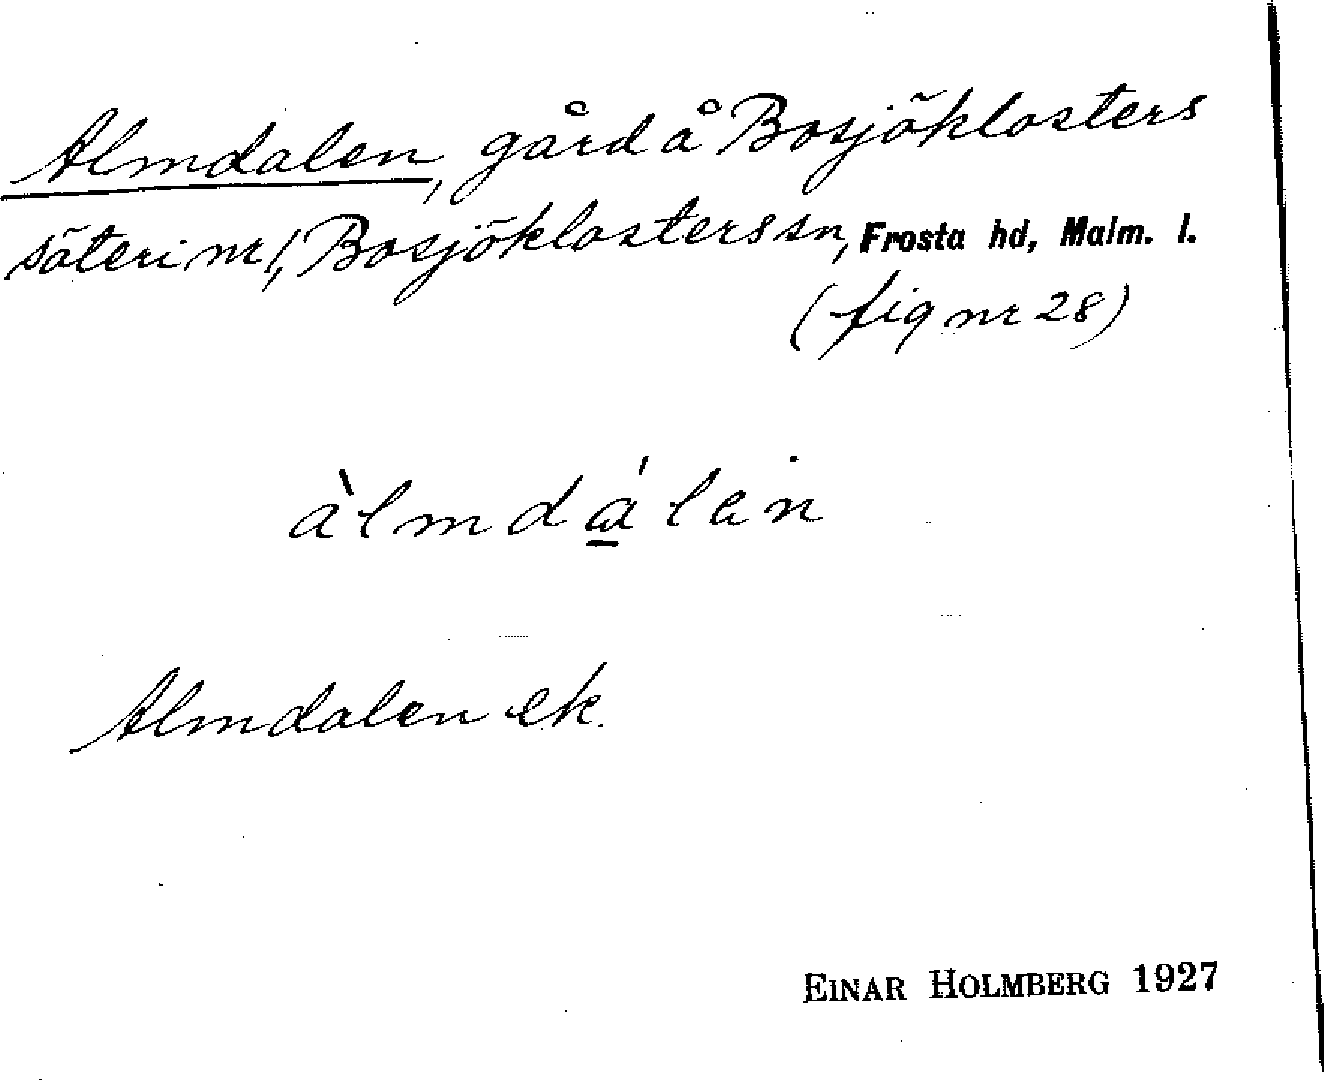 Almdalen, gård å Bosjöklosters
säteri nr 1, Bosjöklosters sn, Frosta hd, Malm. l.
(fig nr 28)
àlmdá̲len
Almdalen ek.
EINAR HOLMBERG 1927